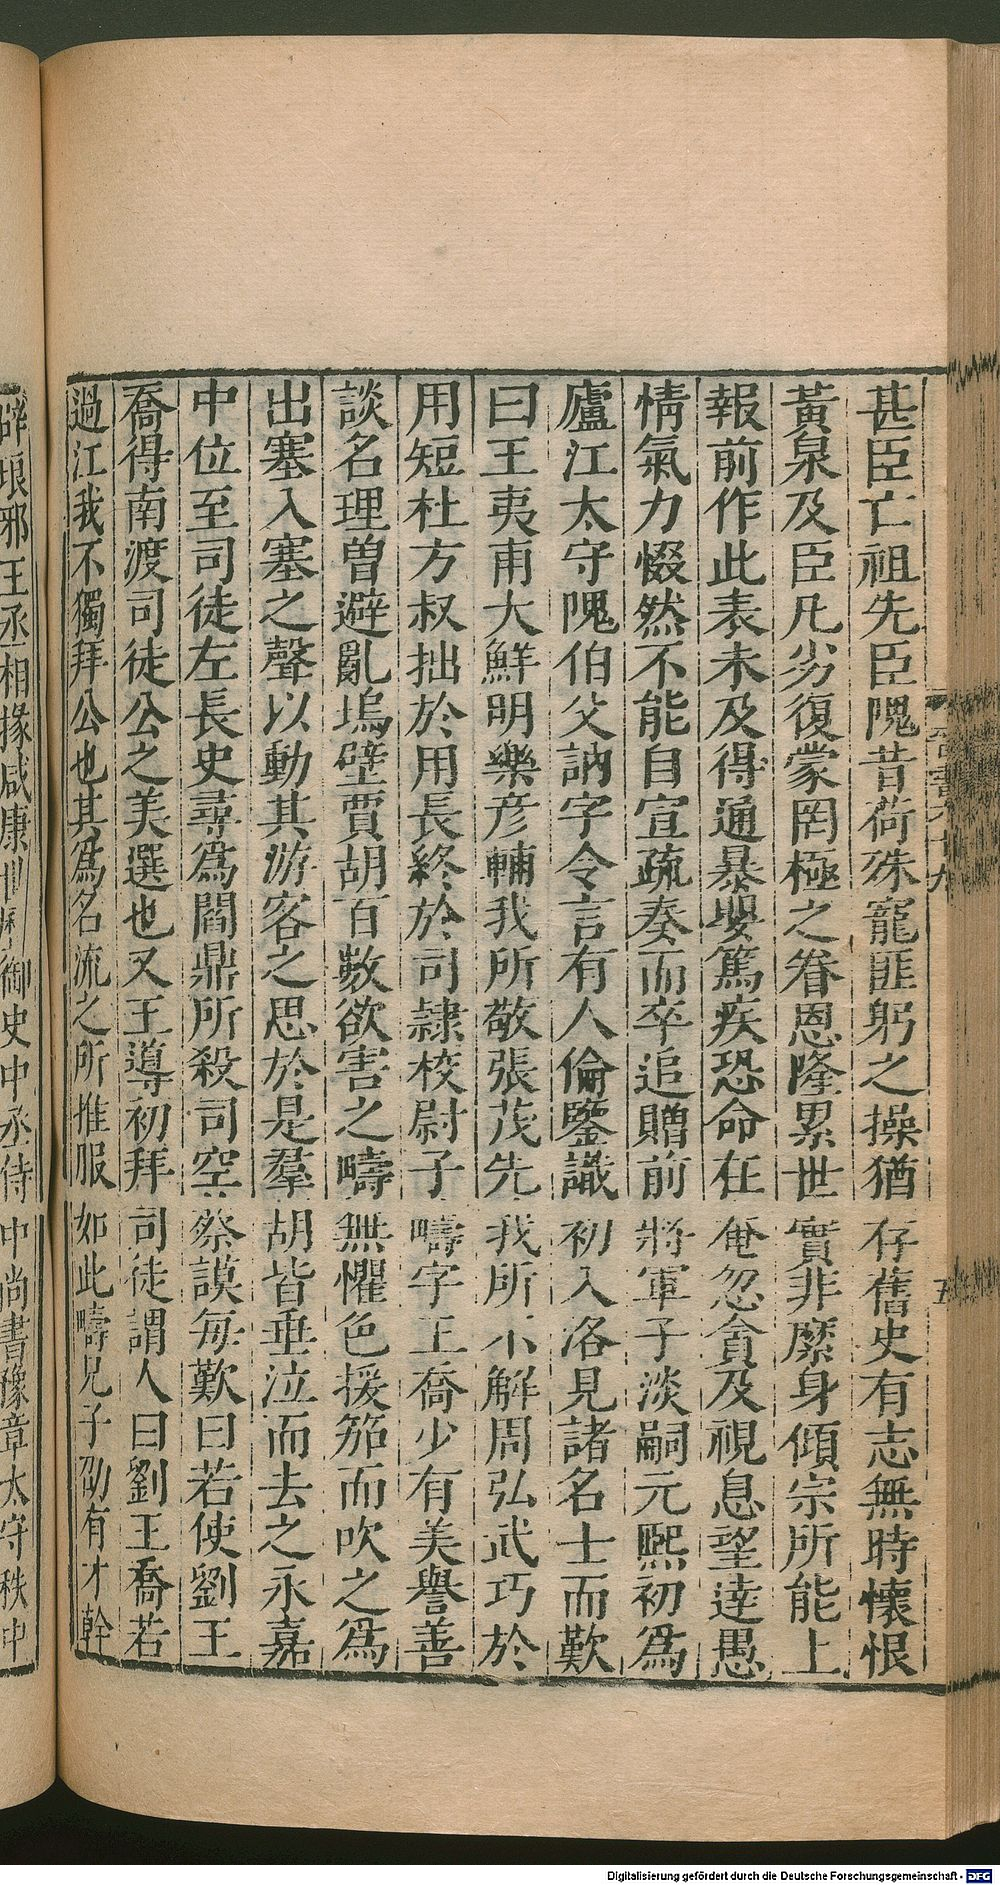 甚臣亡祖先臣隗昔荷殊寵匪躬之操猶存舊史有志無時懷恨
黃泉及臣凡劣復蒙罔極之眷恩隆累世實非糜身傾宗所能上
報前作此表未及得通暴嬰篤疾恐命在奄忽貪及視息望達愚
情氣力惙然不能自宣疏奏而卒追贈前將軍子淡嗣元熙初爲
廬江太守隗伯父訥字令言有人倫鑒識初入洛見諸名士而歎
曰王夷甫大鮮明樂彥輔我所敬張茂先我所不解周弘武巧於
用短杜方叔拙於用長終於司隸校尉子疇字王喬少有美譽善
談名理曽避亂塢壁賈胡百數欲害之疇無懼色援笳而吹之爲
出塞入塞之聲以動其游客之思於是羣胡皆垂泣而去之永嘉
中位至司徒左長史尋爲閻鼎所殺司空蔡謨每歎曰若使劉王
喬得南渡司徒公之美選也又王導初拜司徒謂人曰劉王喬若
過江我不獨拜公也其爲名流之所推服如此疇兄子劭有才幹
辟琅邪王丞相掾咸康世歷御史中丞侍中尚書豫章太守秩中
五
Digitalisierung gefördert durch die Deutsche Forschungsgemeinschaft - DFG